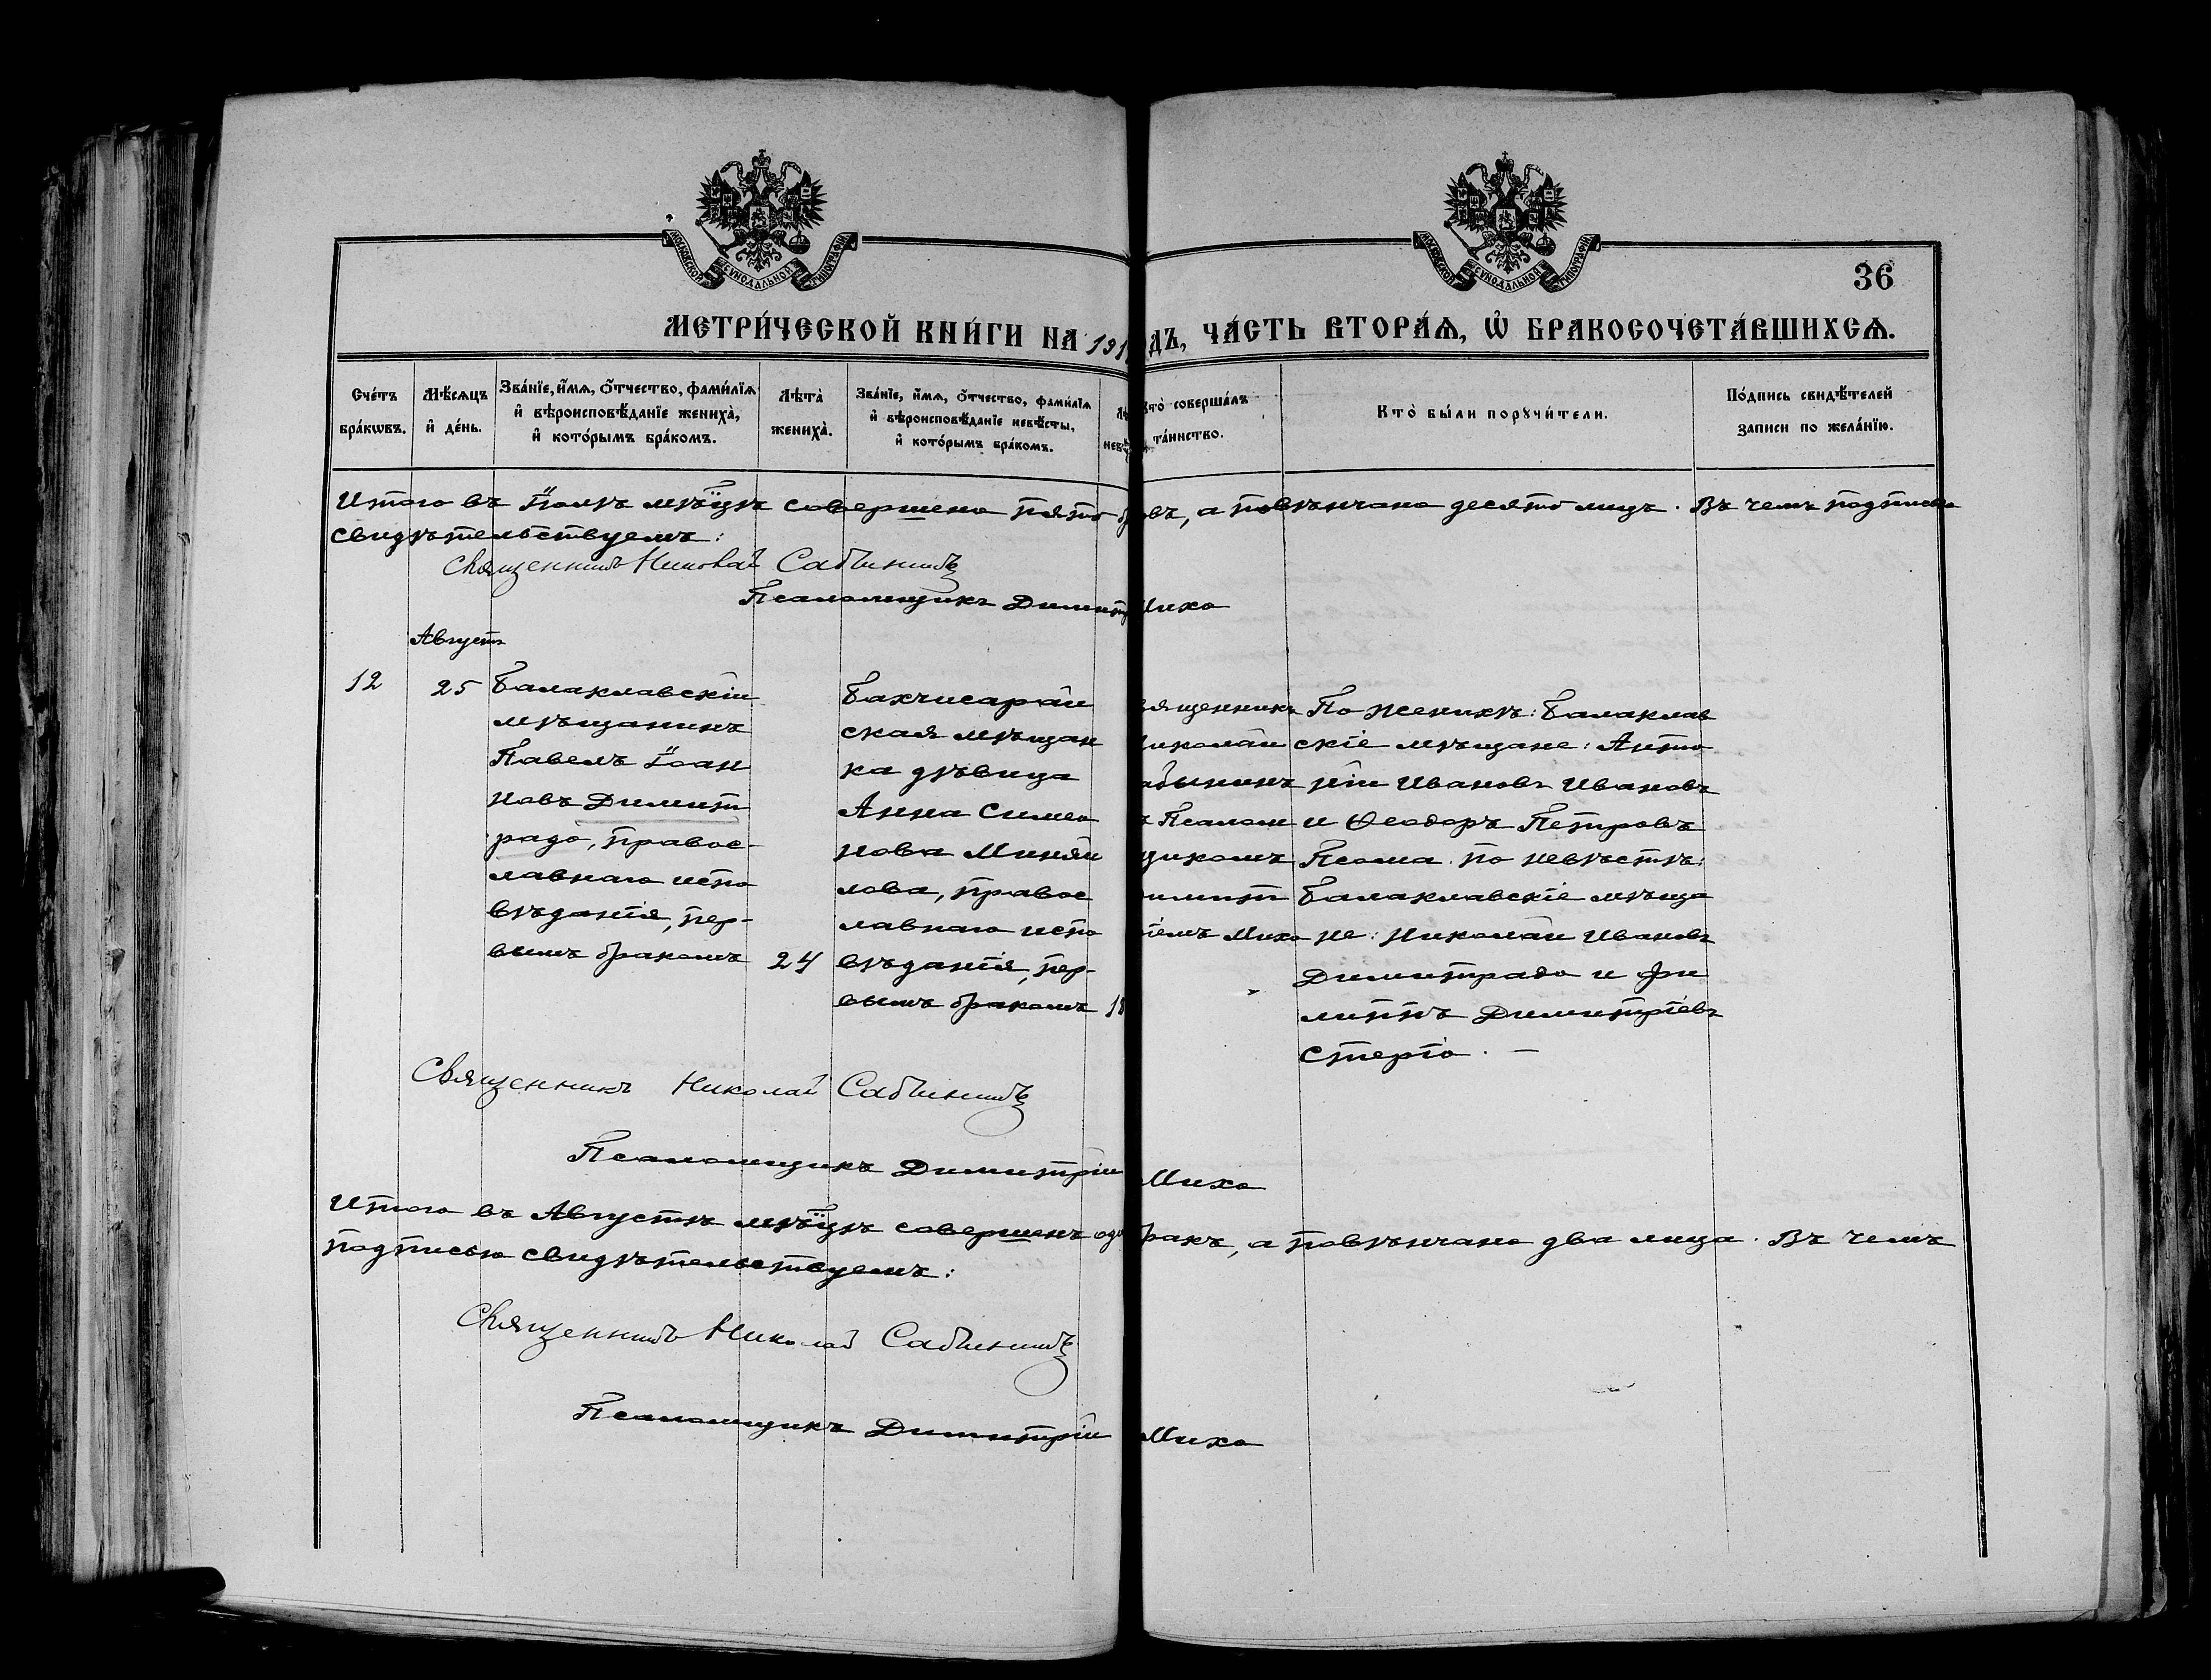 МОСКОВСКОЙ СѴНОДАЛЬНОЙ ТИПОГРАФІИ
МОСКОВСКОЙ СѴНОДАЛЬНОЙ ТИПОГРАФІИ
36
МЕТРИ́ЧЕСКОЙ КНИ́ГИ НА 191 ДЪ, ЧА́СТЬ ВТОРА́Ѧ, Ѽ БРАКОСОЧЕТА́ВШИХСѦ.
Сче́тъ бра́кѡвъ.
Мѣ́сѧцъ и҆ де́нь.
Зва́нїе, и҆́мѧ, ѻ҆́тчество, фами́лїѧ и҆ вѣроисповѣ́данїе жениха̀, и҆ кото́рымъ бра́комъ.
Лѣ́та жениха̀.
Зва́нїе, и҆́мѧ, ѻ҆́тчество, фами́лїѧ и҆ вѣроисповѣ́данїе невѣ́сты, и҆ кото́рымъ бра́комъ.
Лѣ невѣ
кто̀ соверша́лъ та́инство.
Кто̀ бы́ли порꙋчи́тели.
По́дпись свидѣ́телей записи по жела́нїю.
Итого въ Іюлѣ мѣцѣ совершено пять бр овъ, а повѣнчано десять лицъ. Въ чемъ подписью
свидѣтельствуемъ:
Священникъ Николай Сабининъ
Псаломщикъ Димитр Михо
Августъ
12
25
Балаклавскій
мѣщанинъ
Павелъ Іоан
новъ Димит
радо, правос-
лавнаго испо
вѣданія, пер-
вымъ бракомъ
24
Бахчисарай
ская мѣщан
ка дѣвица
Анна Симео
нова Миняй
лова, правос
лавнаго испо
вѣданія, пер-
вымъ бракомъ
18
вященникъ
иколай
абынинъ
ъ Псалом
щикомъ
имит
іемъ Михо
По женихѣ: Балаклав
скіе мѣщане: Анто
ній Ивановъ Ивановъ
и Ѳеодоръ Петровъ
Псома. по невѣстѣ:
Балаклавскіе мѣща
не: Николай Ивановъ
Димитрадо и Фи
липпъ Димитріевъ
Стеріо. —
Священникъ Николай Сабининъ
Псаломщикъ Димитрій Михо
Итого въ Августѣ мѣцѣ совершенъ оди бракъ, а повѣнчано два лица. Въ чемъ
подписью свидѣтельствуемъ:
Священникъ Николай Сабининъ
Псаломщикъ Димитрій Михо